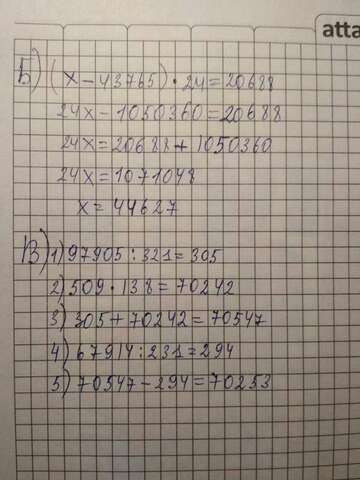 atta
Б) (x-43765)·24=20688
24x-1050360=20688
24x=20688+1050360
24x=1071048
x=44627
В) 1) 97905:321=305
2) 509·138=70242
3) 305+70242=70547
4) 67914:231=294
5) 70547-294=70253